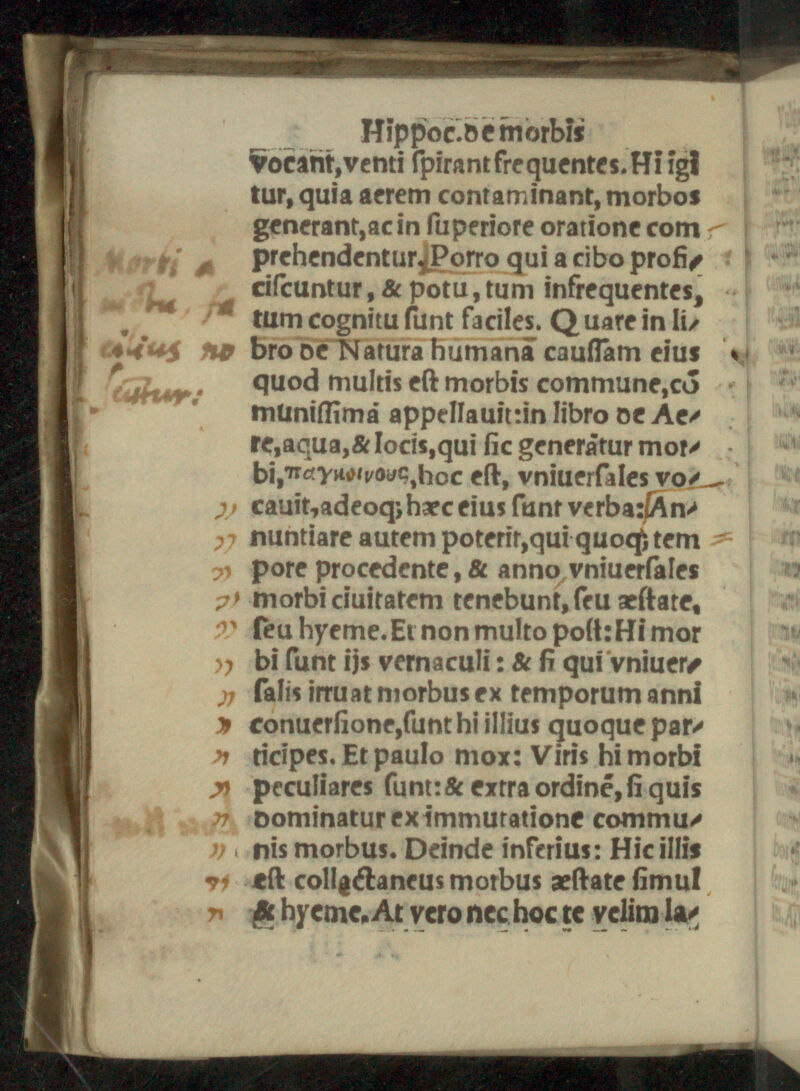 Hippoc. De morbis
vocant, venti ſpirant frequentes. Hi igi
tur, quia aerem contaminant, morbos
generant, ac in ſuperiore oratione com
prehendentur. Porro qui a cibo profi⸗
ciſcuntur, & potu, tum infrequentes,
tum cognitu ſunt faciles. Quare in li⸗
bro De Natura humana cauſſam eius
quod multis eſt morbis commune, cō
muniſſimā appellauit: in libro De Ae⸗
re, aqua, & locis, qui ſic generātur mor⸗
bi, παγκοίνους, hoc eſt, vniuerſales vo⸗
cauit, adeoq; hæc eius ſunt verba: An⸗
nuntiare autem poterit, qui quoq; tem
pore procedente, & anno vniuerſales
morbi ciuitatem tenebunt, ſeu æſtate,
ſeu hyeme. Et non multo poſt: Hi mor
bi ſunt ijs vernaculi: & ſi qui vniuer⸗
ſalis irruat morbus ex temporum anni
conuerſione, ſunt hi illius quoque par⸗
ticipes. Et paulo mox: Viris hi morbi
peculiares ſunt: & extra ordinē, ſi quis
Dominatur ex immutatione commu⸗
nis morbus. Deinde inferius: Hic illis
eſt collectaneus morbus æſtate ſimul
& hyeme. At vero nec hoc te velim la⸗
Morbi a